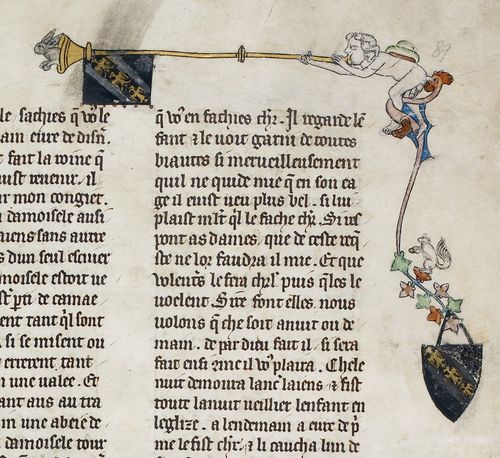 89
le sachies q̃ vo⁹ le
ain eure de disn̄.
t fait la roine q̃
uist reuenir. il
r mon congiet.
damoisele ausi
aiens sans autre
s dun seul escuier
moisele estoit ve
st p̃ti de
ent tant q̃l sont
si se misent ou
errerent tant
n une ualee. Et
ant aus au tra
n une abeie de
damoisele tour
q̃ vo⁹ en fachies chr̃. Il regarde lẽ
fant ⁊ le voit garni de toutes
biautes si merueilleusement
quil ne quide mie q̃ en son ea
ge il euist veu plus bel. si lui
plaist ml̃t q̃l le fache chr̃. Si res
pont as dames, que de ceste req̃
ste ne lor faudra il mie. Et que
volent̃s le fera chr̃, puis q̃les le
voelent. Sire font elles. nous
volons q̃ che soit anuit ou de
main. de par dieu fait il, si sera
fait ensi cõme il vo⁹ plaira. Chele
nuit demoura lanc̃ laiens ⁊ fist
toute la nuit veillier lenfant en
leglize. a lendemain a eure de p̃
me le fist chr̃, ⁊ li caucha lun de